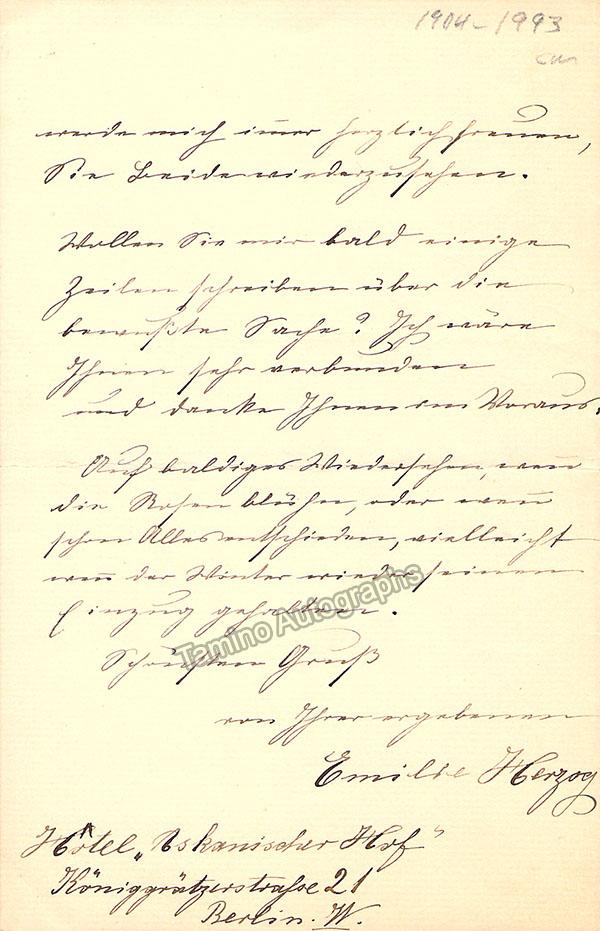 1904-1993
werde mich im̄er herzlich freuen,
Sie Beide wiederzusehen.
Wollen Sie mir bald einige
Zeilen schreiben über die
bewußte Sache? Ich wäre
Ihnen sehr verbunden
und danke Ihnen im Voraus.
Auf baldiges Wiedersehen, wen̄
die Rosen blühn, oder wen̄
schon Alles entschieden, vielleicht
wen̄ der Winter wieder seinen
Einzug gehalten.
Schönsten Gruß
von Ihrer ergebenen
Emilie Herzog
Hôtel „Askanischer Hof"
Königgrätzerstrasse 21
Berlin. W.
Tamino Autographs